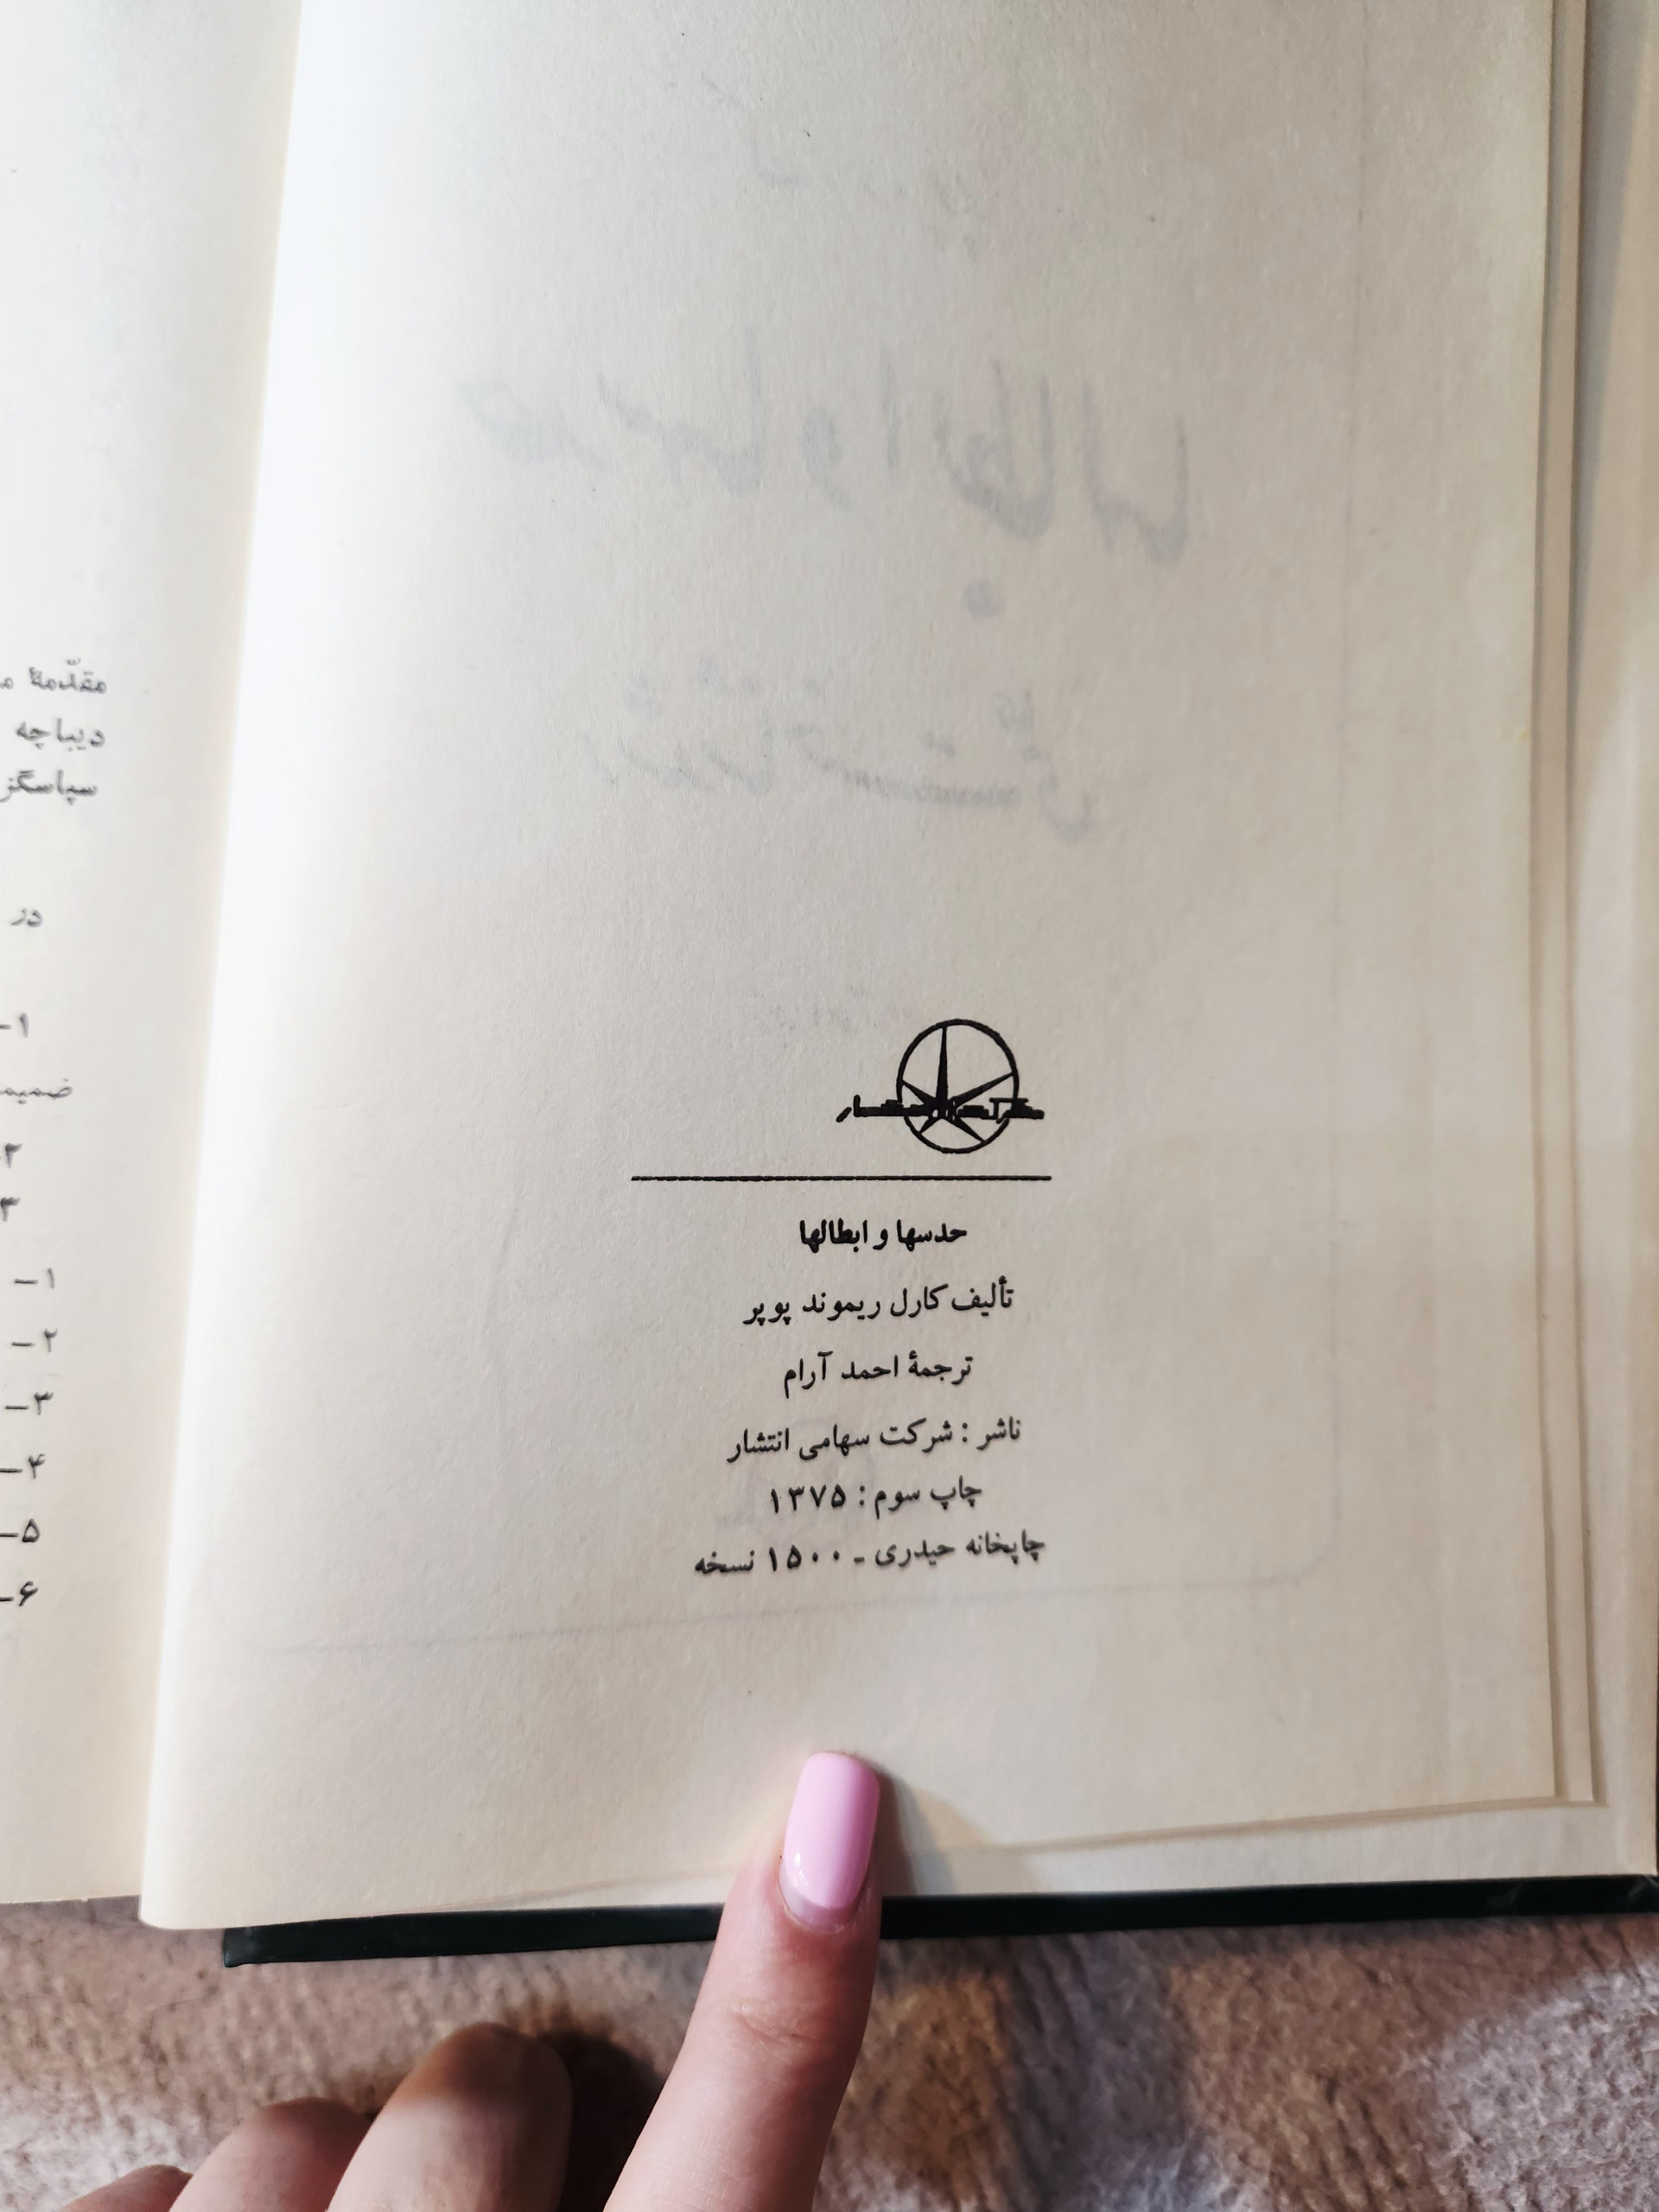 حدسها و ابطالها
تألیف کارل ریموند پوپر
ترجمهٔ احمد آرام
ناشر : شرکت سهامی انتشار
چاپ سوم : ۱۳۷۵
چاپخانه حیدری ـ ۱۵۰۰ نسخه
مقدّمهٔ
دیباچه
در
۱-
۲
۳
۱-
۲-
۳-
۴-
۵-
۶-